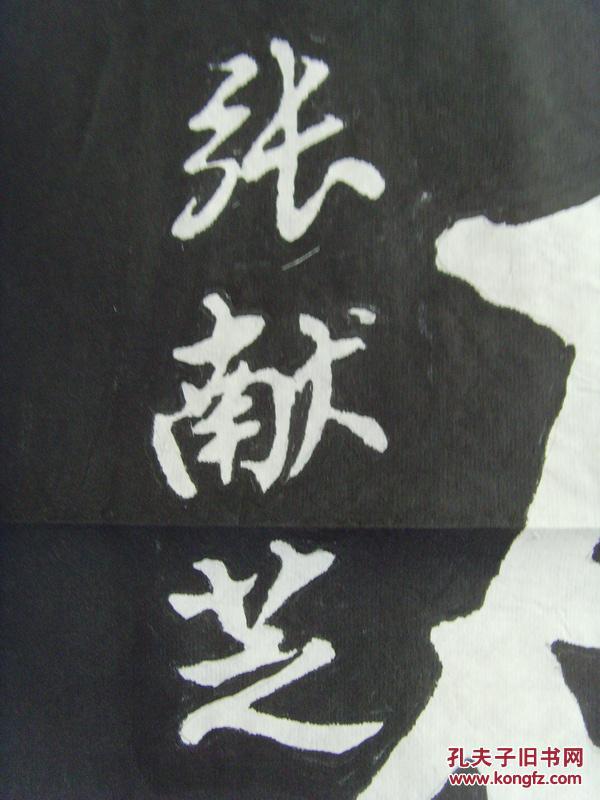 张献芝
孔夫子旧书网
www.kongfz.com